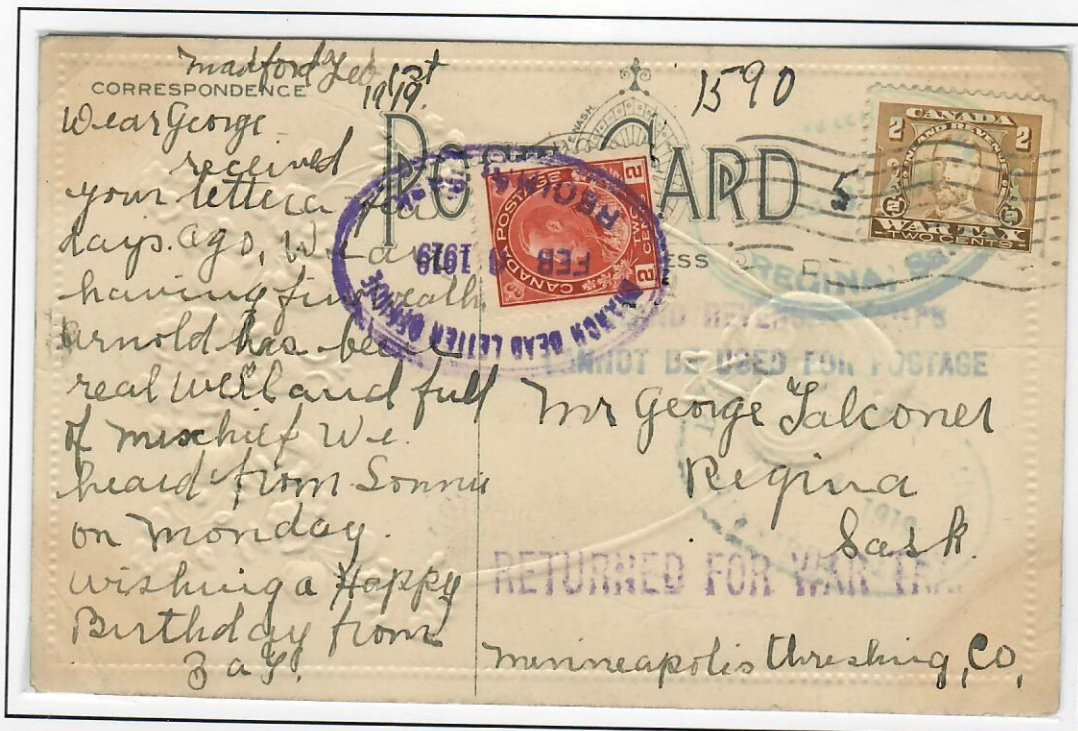 CORRESPONDENCE
Feb 1st
1919.
Dear George
received
your letter a few
days ago, We are
having fine weath
Arnold has been
real well and full
of mischief We
heard from Sonnie
on Monday.
wishing a Happy
Birthday from
POST CARD
1590
5
CANADA
2 2
INLAND REVENUE
WAR TAX
TWO CENTS
CANADA POSTAGE
2 TWO CENTS 2
BRANCH DEAD LETTER OFFICE
FEB 8 1919
REGINA
SASK.
REGINA, Sa
AND REVENUE STAMPS
CANNOT BE USED FOR POSTAGE
Mr George Falconer
Regina
Sask.
1919
RETURNED FOR WAR TAX
Minneapolis Threshing, Co,